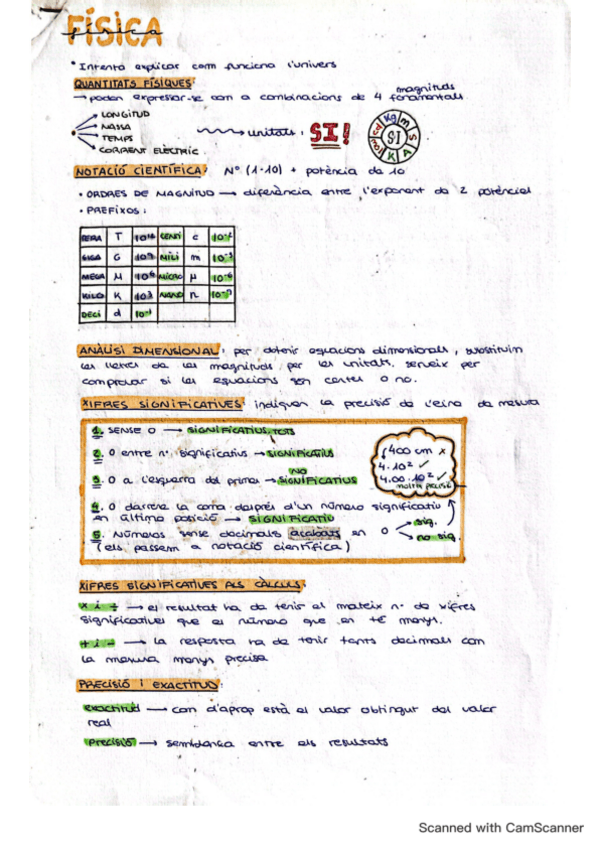 FÍSICA
física
* Intenta explicar com funciona l'univers
QUANTITATS FÍSIQUES:
→ poden expressar-se com a combinacions de 4 magnituds fonamentals
LONGITUD
MASSA
TEMPS
CORRENT ELÈCTRIC
unitats: SI!
SI
Kg m S A K mol cd
NOTACIÓ CIENTÍFICA: Nº (1-10) + potència de 10
• ORDRES DE MAGNITUD → diferència entre l'exponent de 2 potències
• PREFIXOS:
TERA T 10¹² CENTI c 10⁻²
GIGA G 10⁹ MILI m 10⁻³
MEGA M 10⁶ MICRO μ 10⁻⁶
KILO K 10³ NANO n 10⁻⁹
DECI d 10⁻¹
ANÀLISI DIMENSIONAL: per obtenir equacions dimensionals, substituim
les lletres de les magnituds per les unitats. serveix per
comprovar si les equacions son certes o no.
XIFRES SIGNIFICATIVES: indiquen la precisió de l'eina de mesura
1. SENSE 0 → SIGNIFICATIUS TOTS
2. 0 entre nº significatius → SIGNIFICATIUS
3. 0 a l'esquerra del primer → NO SIGNIFICATIUS
4. 0 darrere la coma després d'un número significatiu
en última posició → SIGNIFICATIU
5. Números sense decimals acabats en 0 sig. no sig.
(els passem a notació científica)
400 cm x
4·10² ✓
4.00·10² ✓
molta precisió
XIFRES SIGNIFICATIVES ALS CÀLCULS:
x i ÷ → el resultat ha de tenir el mateix nº de xifres
significatives que el número que en té menys.
+ i - → la resposta ha de tenir tants decimals com
la mesura menys precisa
PRECISIÓ I EXACTITUD:
exactitud → com d'aprop està el valor obtingut del valor
real
Precisió → semblança entre els resultats
Scanned with CamScanner